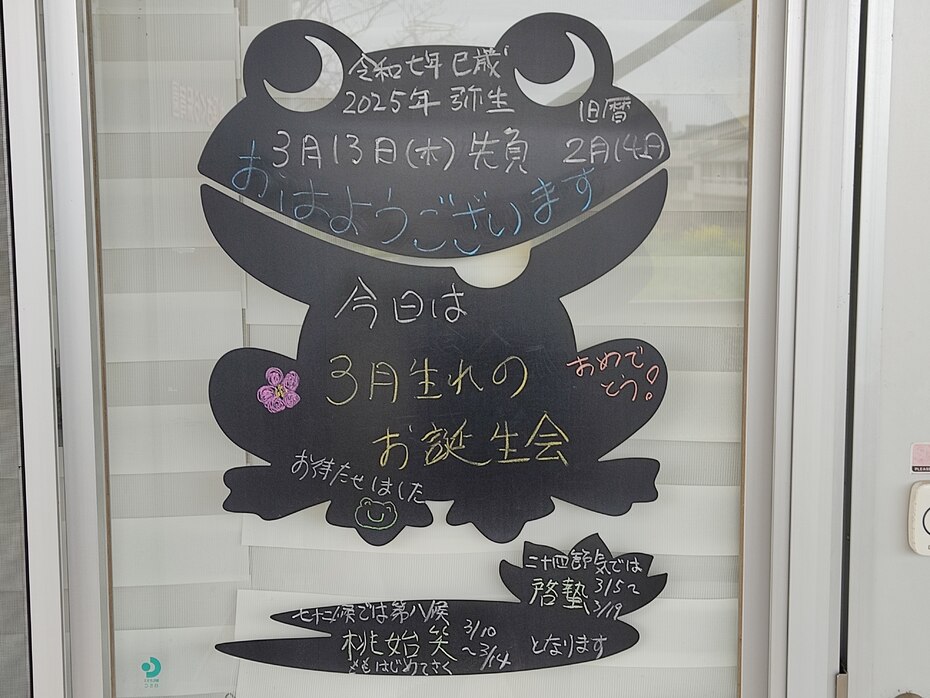 令和七年 巳歳
2025年 弥生
旧暦
3月13日(木) 先負
2月14日
おはようございます
今日は
3月生れの
おめで
とう!
お誕生会
お待たせしました
二十四節気では
啓蟄 3/5〜
3/19
七十二候では第八候
桃始笑 3/10
〜3/14
となります
ももはじめてさく